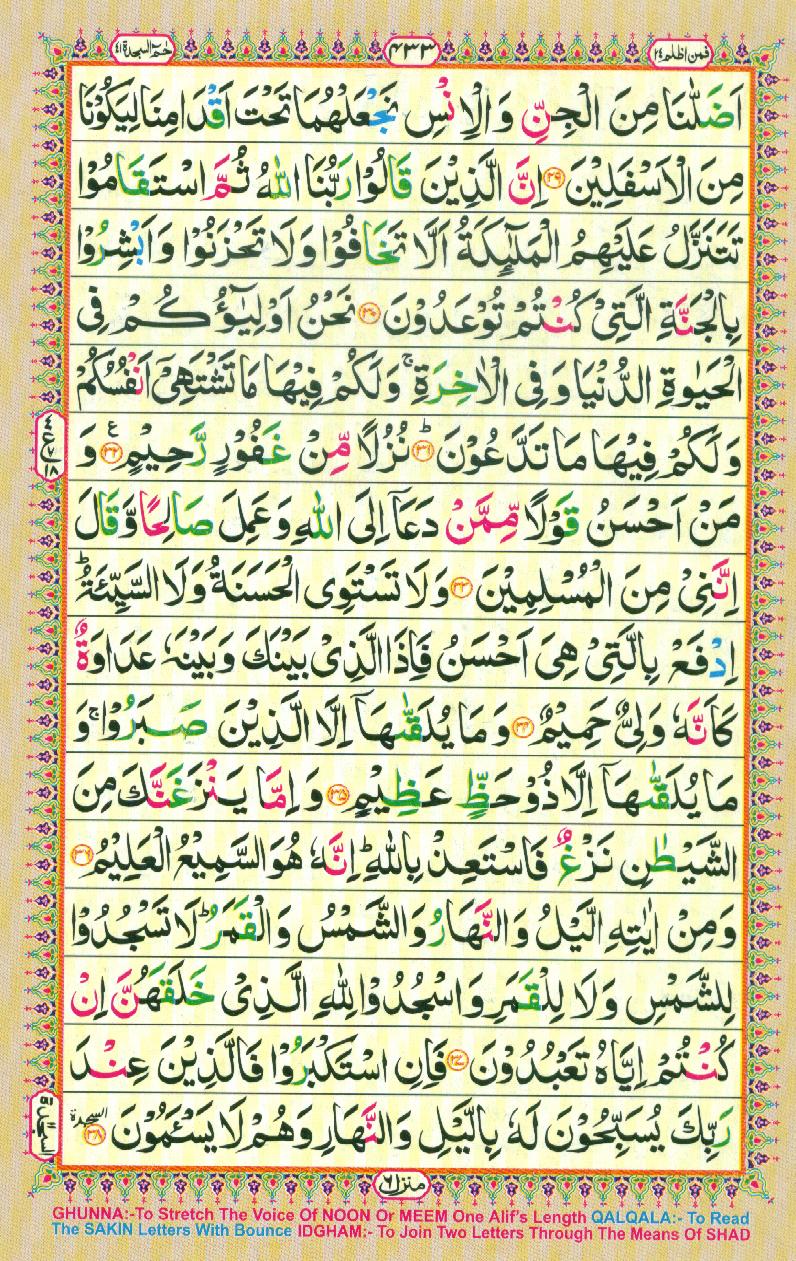 فمن اظلم ٢٤
٤٣٣
حٰمٓ السجدة ٤١
اَضَلّٰنَا مِنَ الْجِنِّ وَالْاِنْسِ نَجْعَلْهُمَا تَحْتَ اَقْدَامِنَا لِيَكُوْنَا
مِنَ الْاَسْفَلِيْنَ ﴿۲۹﴾ اِنَّ الَّذِيْنَ قَالُوْا رَبُّنَا اللّٰهُ ثُمَّ اسْتَقَامُوْا
تَتَنَزَّلُ عَلَيْهِمُ الْمَلٰٓئِكَةُ اَلَّا تَخَافُوْا وَلَا تَحْزَنُوْا وَاَبْشِرُوْا
بِالْجَنَّةِ الَّتِيْ كُنْتُمْ تُوْعَدُوْنَ ﴿۳۰﴾ نَحْنُ اَوْلِيٰٓؤُكُمْ فِي
الْحَيٰوةِ الدُّنْيَا وَفِي الْاٰخِرَةِ ۚ وَلَكُمْ فِيْهَا مَا تَشْتَهِيْٓ اَنْفُسُكُمْ
وَلَكُمْ فِيْهَا مَا تَدَّعُوْنَ ﴿۳۱﴾ ؕ نُزُلًا مِّنْ غَفُوْرٍ رَّحِيْمٍ ﴿۳۲﴾ ع وَ
مَنْ اَحْسَنُ قَوْلًا مِّمَّنْ دَعَآ اِلَى اللّٰهِ وَعَمِلَ صَالِحًا وَّقَالَ
اِنَّنِيْ مِنَ الْمُسْلِمِيْنَ ﴿۳۳﴾ وَلَا تَسْتَوِي الْحَسَنَةُ وَلَا السَّيِّئَةُ ؕ
اِدْفَعْ بِالَّتِيْ هِيَ اَحْسَنُ فَاِذَا الَّذِيْ بَيْنَكَ وَبَيْنَهٗ عَدَاوَةٌ
كَاَنَّهٗ وَلِيٌّ حَمِيْمٌ ﴿۳۴﴾ وَمَا يُلَقّٰىهَآ اِلَّا الَّذِيْنَ صَبَرُوْا ۚ وَ
مَا يُلَقّٰىهَآ اِلَّا ذُوْ حَظٍّ عَظِيْمٍ ﴿۳۵﴾ وَاِمَّا يَنْزَغَنَّكَ مِنَ
الشَّيْطٰنِ نَزْغٌ فَاسْتَعِذْ بِاللّٰهِ ؕ اِنَّهٗ هُوَ السَّمِيْعُ الْعَلِيْمُ ﴿۳۶﴾
وَمِنْ اٰيٰتِهِ الَّيْلُ وَالنَّهَارُ وَالشَّمْسُ وَالْقَمَرُ ؕ لَا تَسْجُدُوْا
لِلشَّمْسِ وَلَا لِلْقَمَرِ وَاسْجُدُوْا لِلّٰهِ الَّذِيْ خَلَقَهُنَّ اِنْ
كُنْتُمْ اِيَّاهُ تَعْبُدُوْنَ ﴿۳۷﴾ فَاِنِ اسْتَكْبَرُوْا فَالَّذِيْنَ عِنْدَ
رَبِّكَ يُسَبِّحُوْنَ لَهٗ بِالَّيْلِ وَالنَّهَارِ وَهُمْ لَا يَسْـَٔمُوْنَ ﴿۳۸﴾ السجدة
السجدة
منزل ٦
GHUNNA:-To Stretch The Voice Of NOON Or MEEM One Alif's Length QALQALA:- To Read
The SAKIN Letters With Bounce IDGHAM:- To Join Two Letters Through The Means Of SHAD